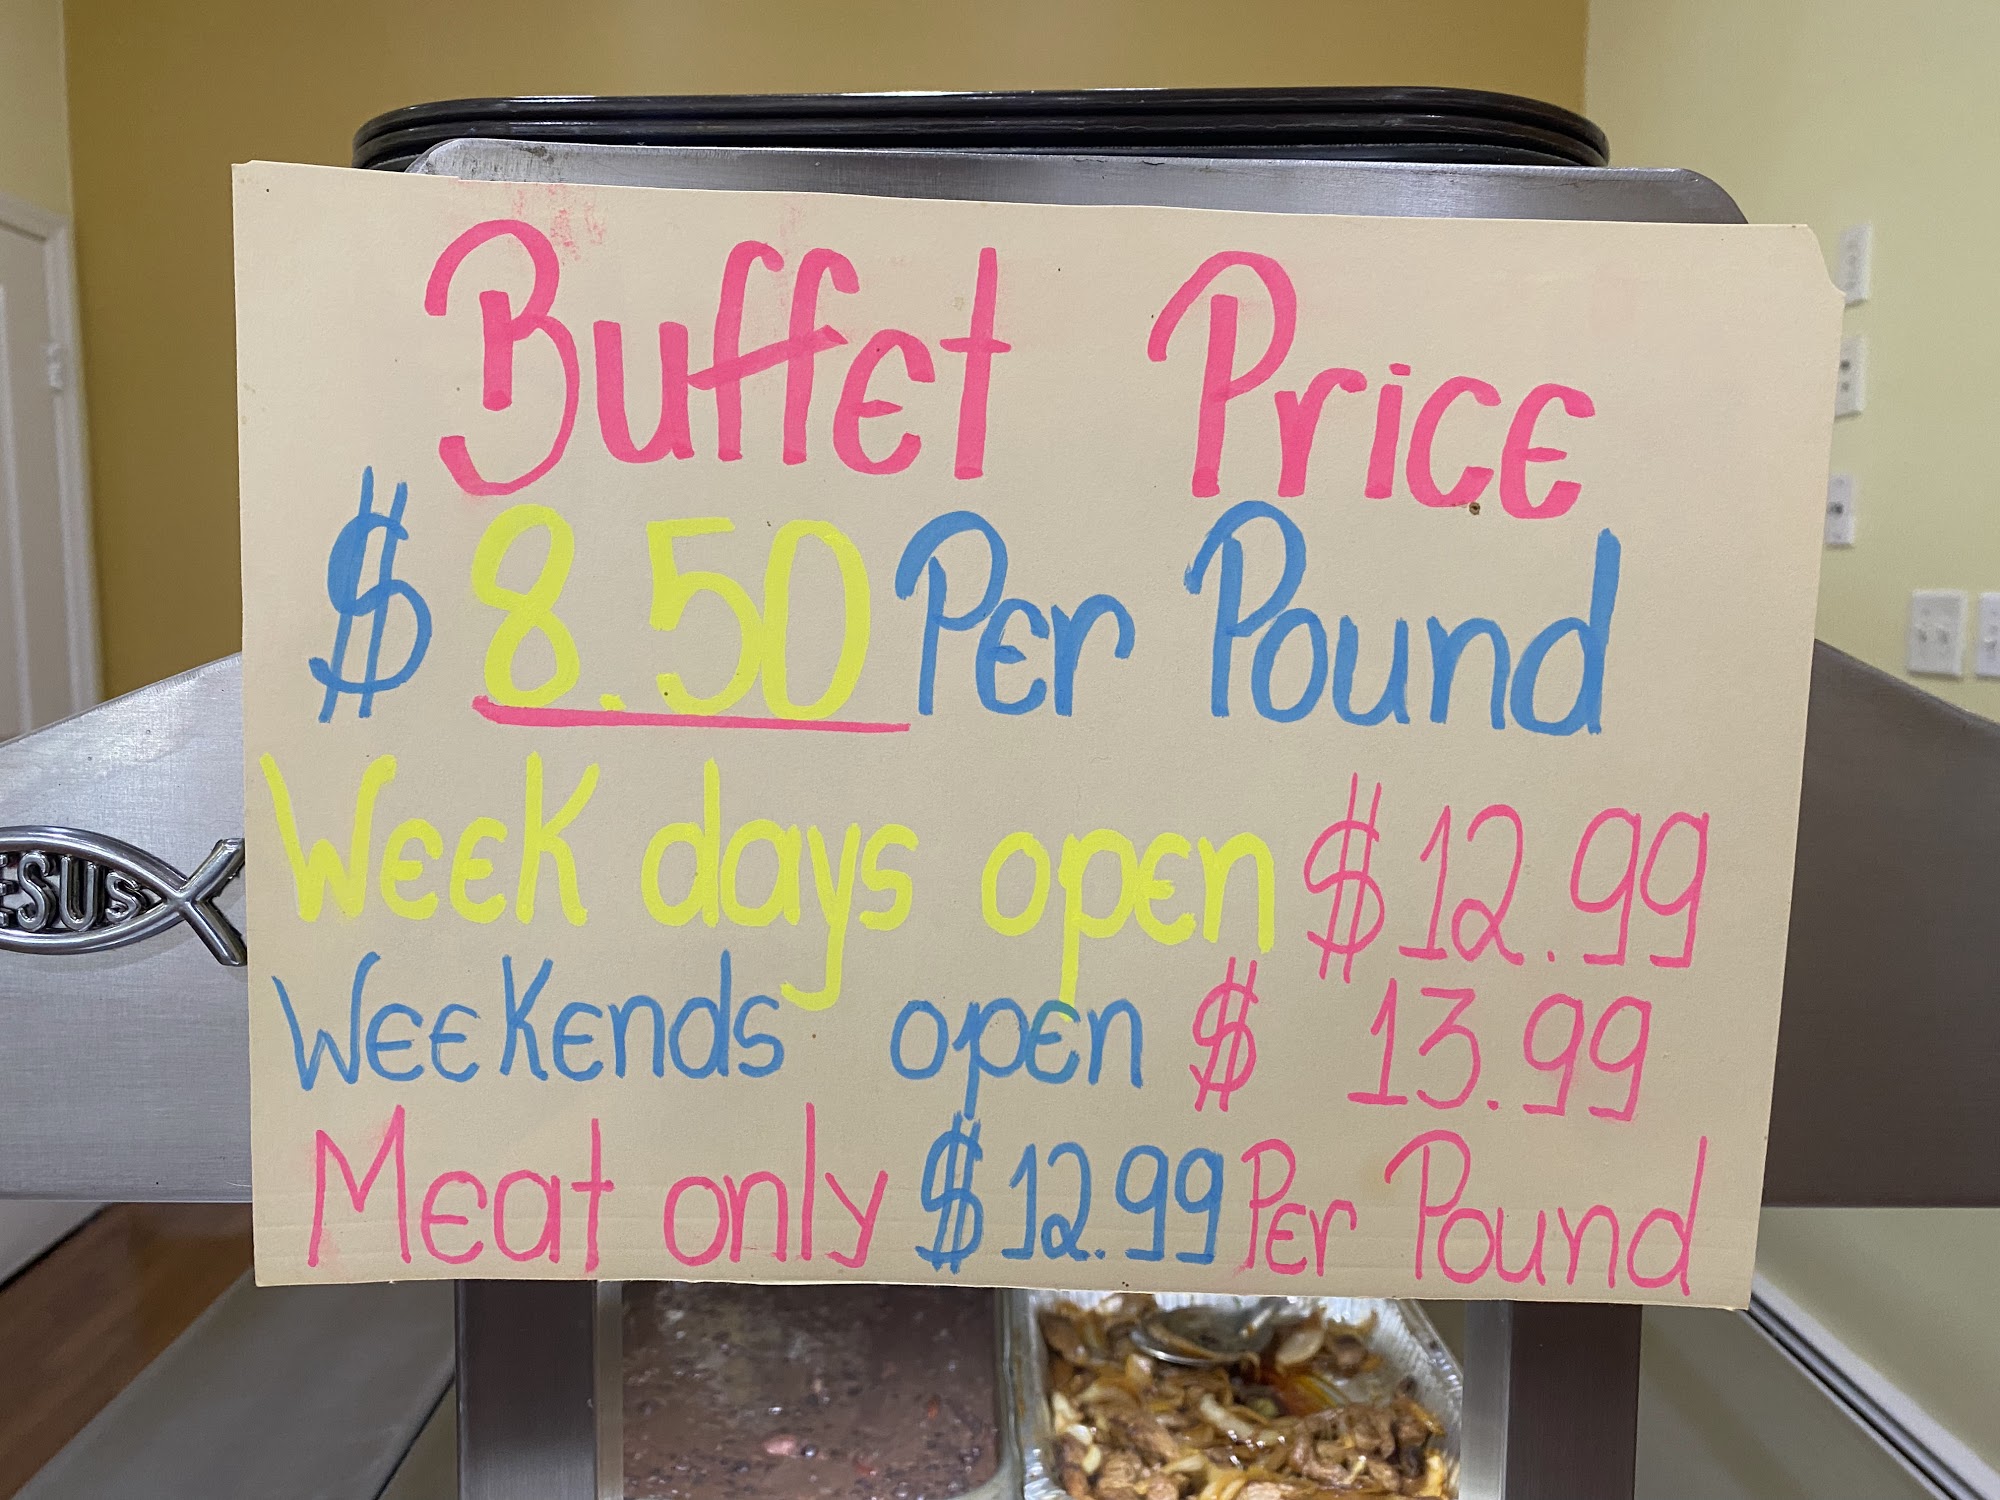 Buffet Price
$ 8.50 Per Pound
Week days open $12.99
Weekends open $ 13.99
Meat only $12.99 Per Pound
ESUS